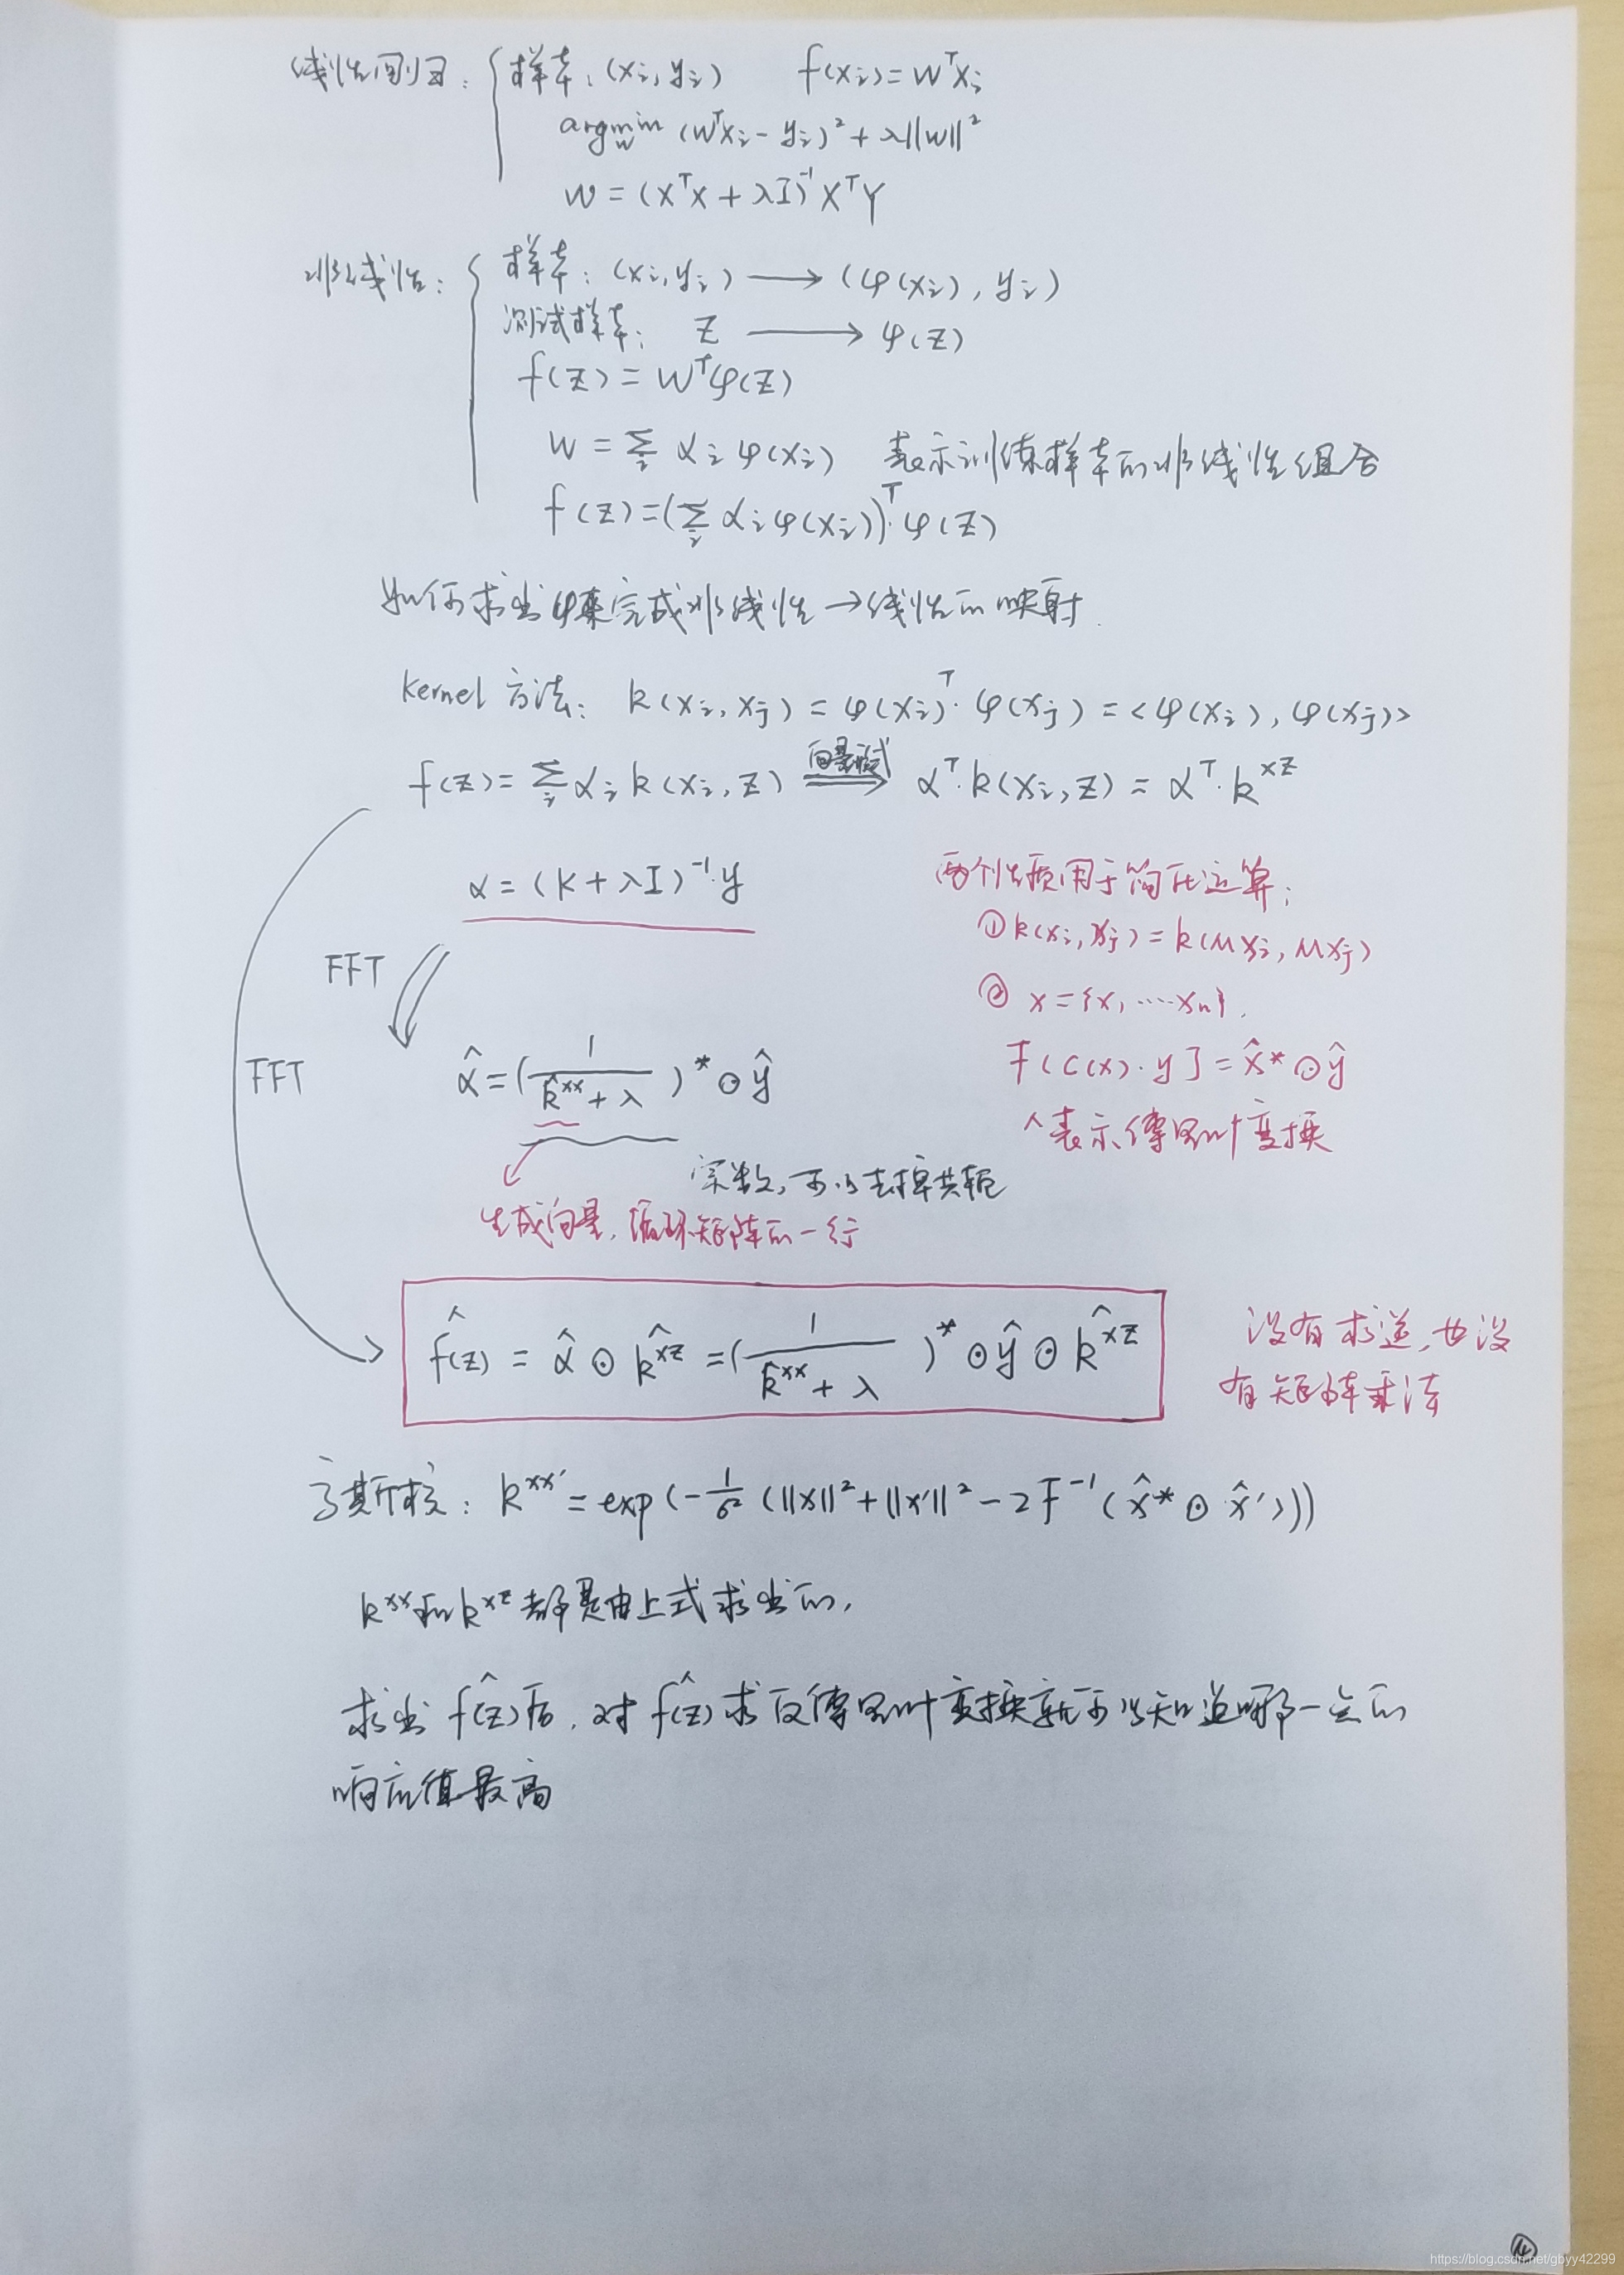 线性回归: 样本: (xi, yi)  f(xi)=wᵀxi
argmin w (wᵀxi - yi)² + λ||w||²
w = (XᵀX + λI)⁻¹XᵀY
非线性: 样本: (xi, yi) ⟶ (φ(xi), yi)
测试样本: z ⟶ φ(z)
f(z) = wᵀφ(z)
w = Σi αi φ(xi)  表示训练样本的非线性组合
f(z) = (Σi αi φ(xi))ᵀ·φ(z)
如何求出φ来完成非线性→线性的映射.
kernel 方法: k(xi, xj) = φ(xi)ᵀ·φ(xj) = <φ(xi), φ(xj)>
f(z) = Σi αi k(xi, z) ⟹ 向量形式 αᵀ·k(xi, z) = αᵀ·k^xz
α = (K + λI)⁻¹·y
两个性质用于简化运算:
① k(xi, xj) = k(Mxi, Mxj)
② x = {x, ·····xn}.
F[C(x)·y] = x̂* ⊙ ŷ
^表示傅里叶变换
FFT
FFT
α̂ = (1/(k̂^xx + λ))* ⊙ ŷ
实数, 可以去掉共轭
生成向量, 循环矩阵的一行
f̂(z) = α̂ ⊙ k̂^xz = (1/(k̂^xx + λ))* ⊙ ŷ ⊙ k̂^xz
没有求逆, 也没
有矩阵乘法
高斯核: k^xx′ = exp(-1/σ² (||x||² + ||x′||² - 2F⁻¹(x̂* ⊙ x̂′)))
k^xx和k^xz都是由上式求出的,
求出f̂(z)后, 对f̂(z)求反傅里叶变换就可以知道哪一点的
响应值最高
14
https://blog.csdn.net/gbyy42299